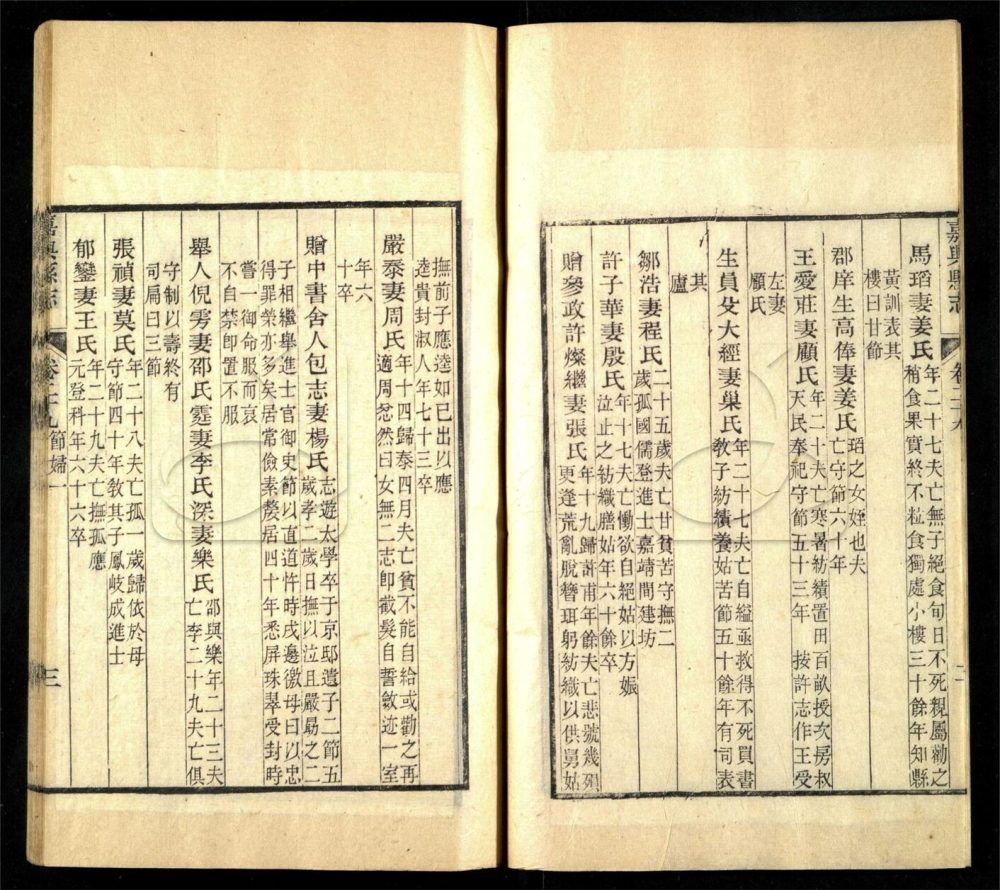 嘉興縣志
卷二十九
二
馬瑫妻姜氏年二十七夫亡無子絕食旬日不死親屬勸之
稍食果實終不粒食獨處小樓三十餘年知縣
黃訓表其
樓曰甘節
郡庠生高俸妻姜氏瑫之女姪也夫
亡守節六十年
王愛莊妻顧氏年二十夫亡寒暑紡績置田百畝授次房叔
天民奉祀守節五十三年 按許志作王受
左妻
顧氏
生員殳大經妻巢氏年二十七夫亡自縊亟救得不死買書
教子紡績養姑苦節五十餘年有司表
其
廬
鄒浩妻程氏二十五歲夫亡甘貧苦守撫二
歲孤國儒登進士嘉靖間建坊
許子華妻殷氏年十七夫亡慟欲自絕姑以方娠
泣止之紡織膳姑年六十餘卒
贈參政許燦繼妻張氏年十九歸許甫年餘夫亡悲號幾殞
更逢荒亂脫簪珥躬紡織以供舅姑
撫前子應逵如已出以應
逵貴封淑人年七十三卒
嚴泰妻周氏年十四歸泰四月夫亡貧不能自給或勸之再
適周忿然曰女無二志即截髮自誓斂迹一室
年六
十卒
贈中書舍人包志妻楊氏志遊太學卒于京邸遺子二節五
歲孝二歲日撫以泣且嚴勗之二
子相繼舉進士官御史節以直道忤時戍邊徼母曰以忠
得罪榮亦多矣居常儉素嫠居四十年悉屏珠翠受封時
嘗一御命服而哀
不自禁即置不服
舉人倪雱妻邵氏霆妻李氏深妻樂氏邵與樂年二十三夫
亡李二十九夫亡俱
守制以壽終有
司扁曰三節
張禎妻莫氏年二十八夫亡孤一歲歸依於母
守節四十年教其子鳳岐成進士
郁鑾妻王氏年二十九夫亡撫孤應
元登科年六十六卒
嘉興縣志
卷二十九 節婦一
三